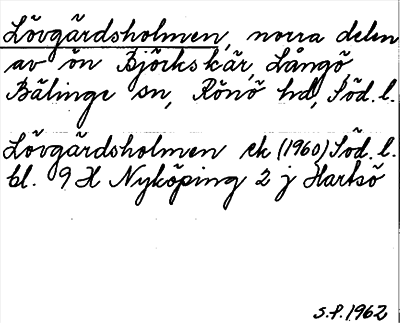 Lövgärdsholmen, norra delen
av ön Björkskär, Långö,
Bälinge sn, Rönö hd, Söd. l.
Lövgärdsholmen ek (1960) Söd. l.
bl. 9 H Nyköping 2 j Hartsö
S.P. 1962